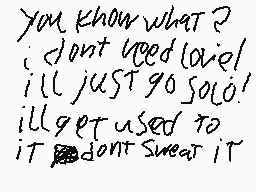 you know what?
i dont need love!
ill just go solo!
ill get used to
it dont sweat it